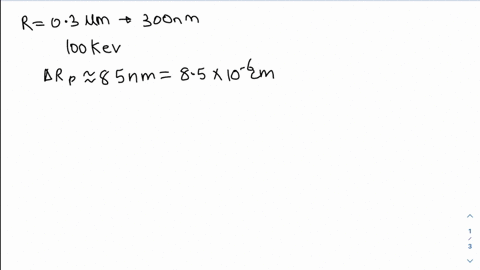 R = 0.3 μm → 300nm
100 Kev
ΔRp ≈ 85nm = 8.5 × 10⁻⁶cm
1
/
3